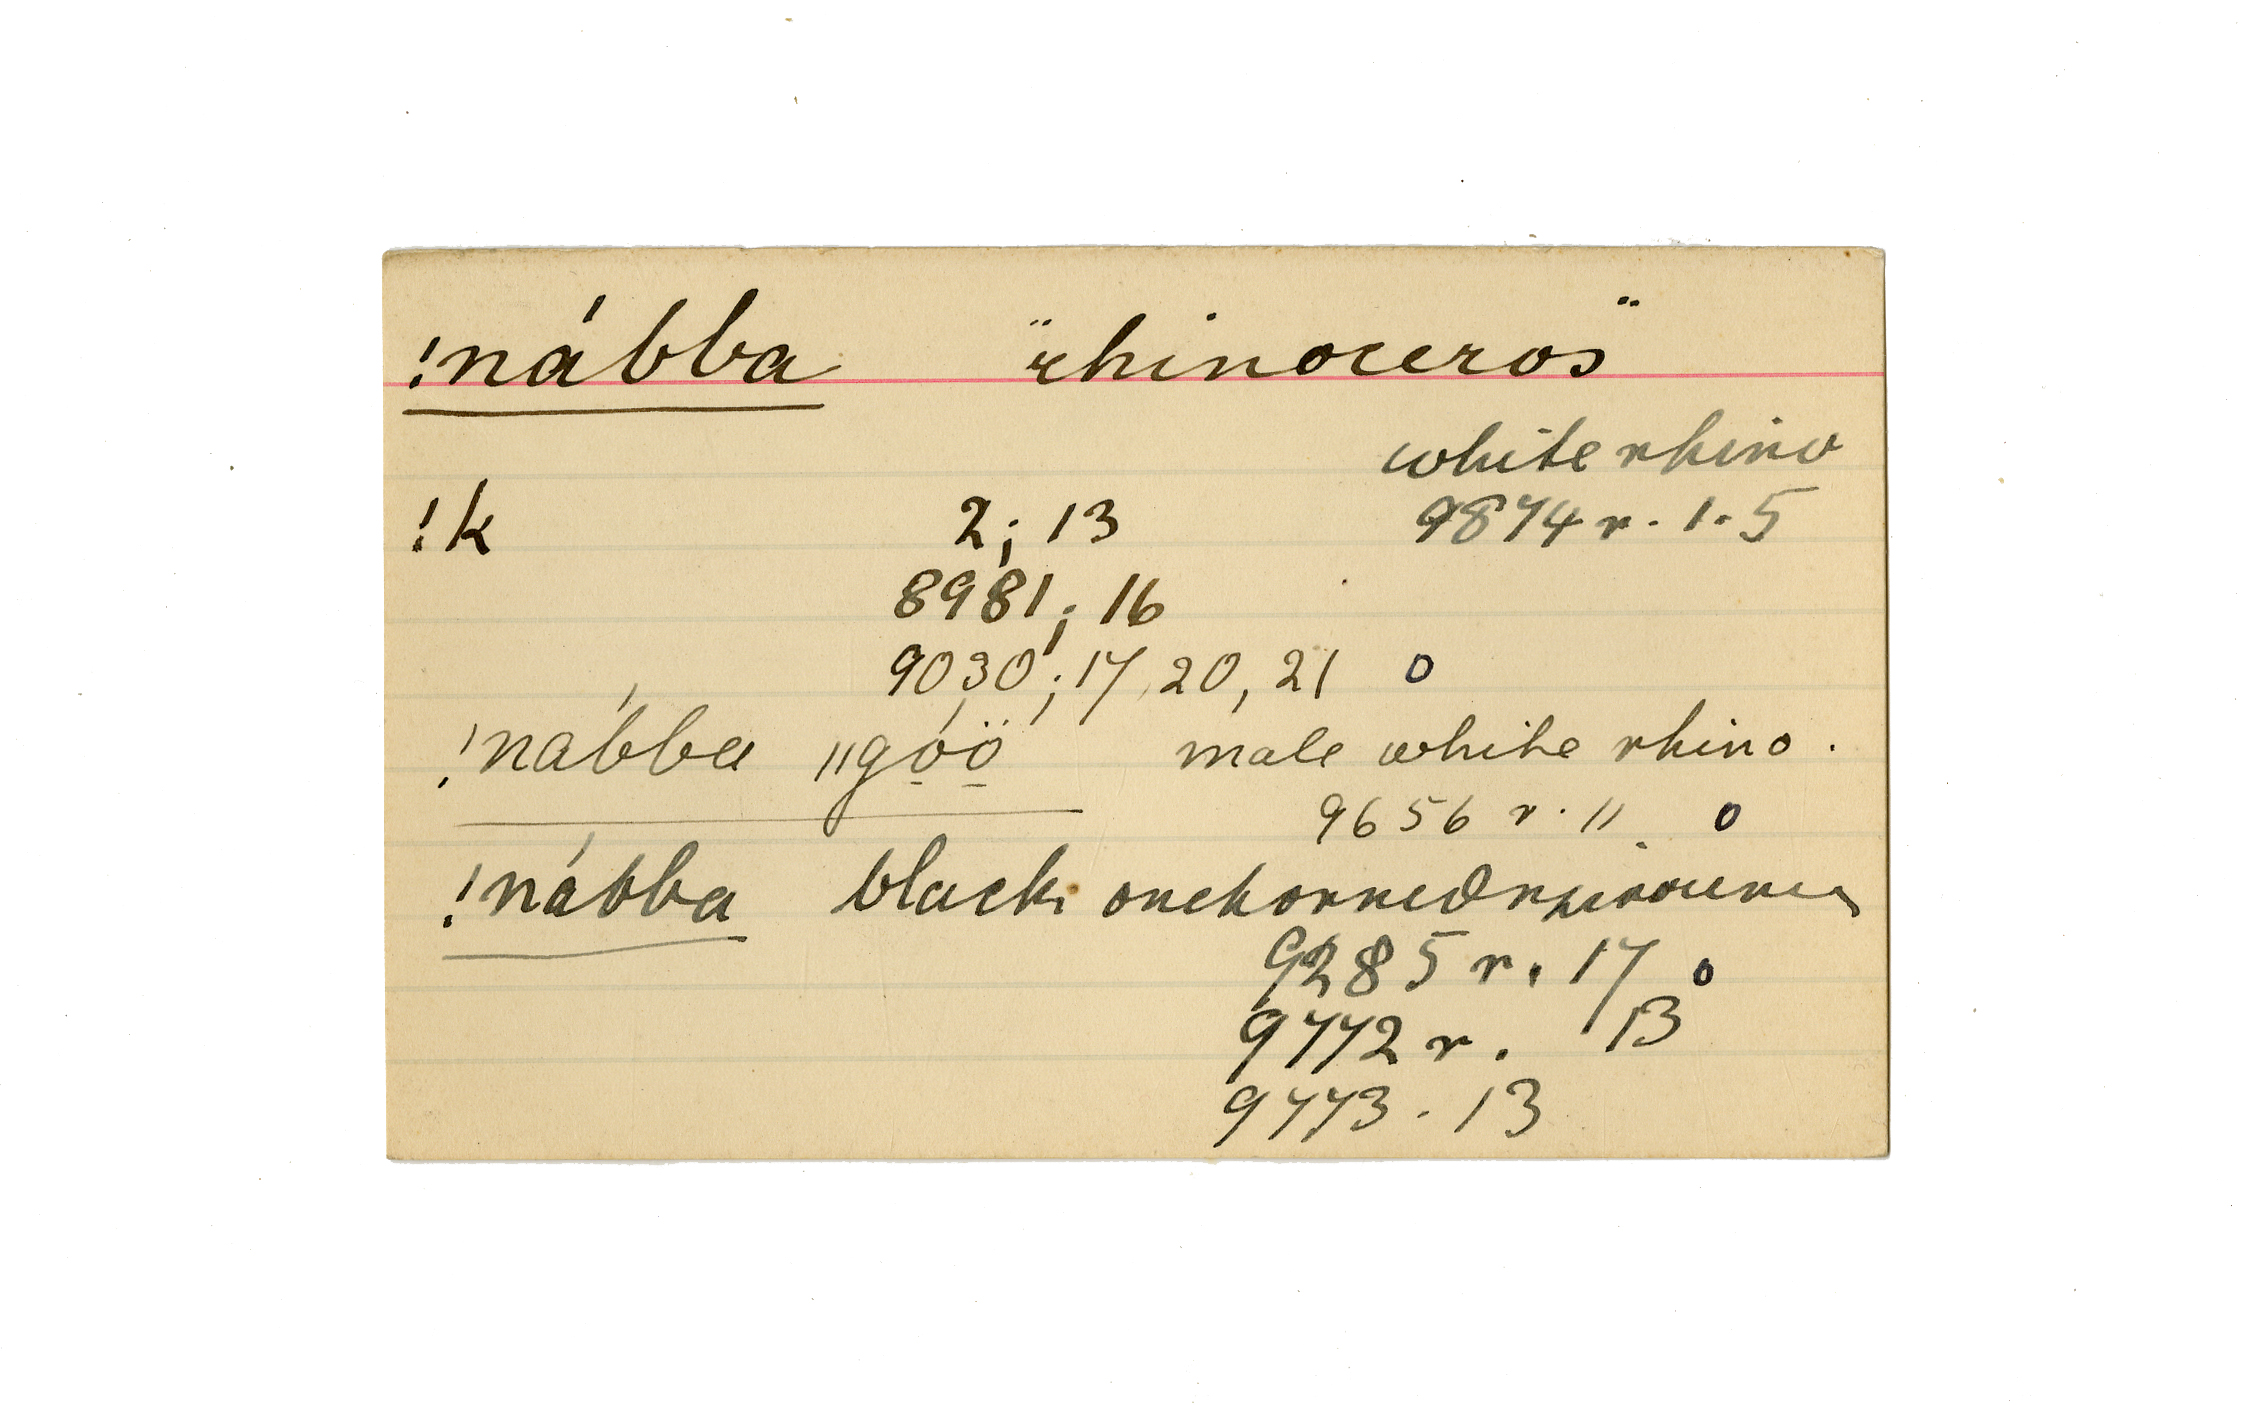 !nábba "rhinoceros"
white rhino
!k 2; 13 9874 r. 1.5
8981; 16
9030; 17, 20, 21 o
!nábba ǁgó̱ö̱ male white rhino.
9656 r. 11 o
!nábba black onehorned
9285 r. 17 o
9772 r. 13
9773. 13